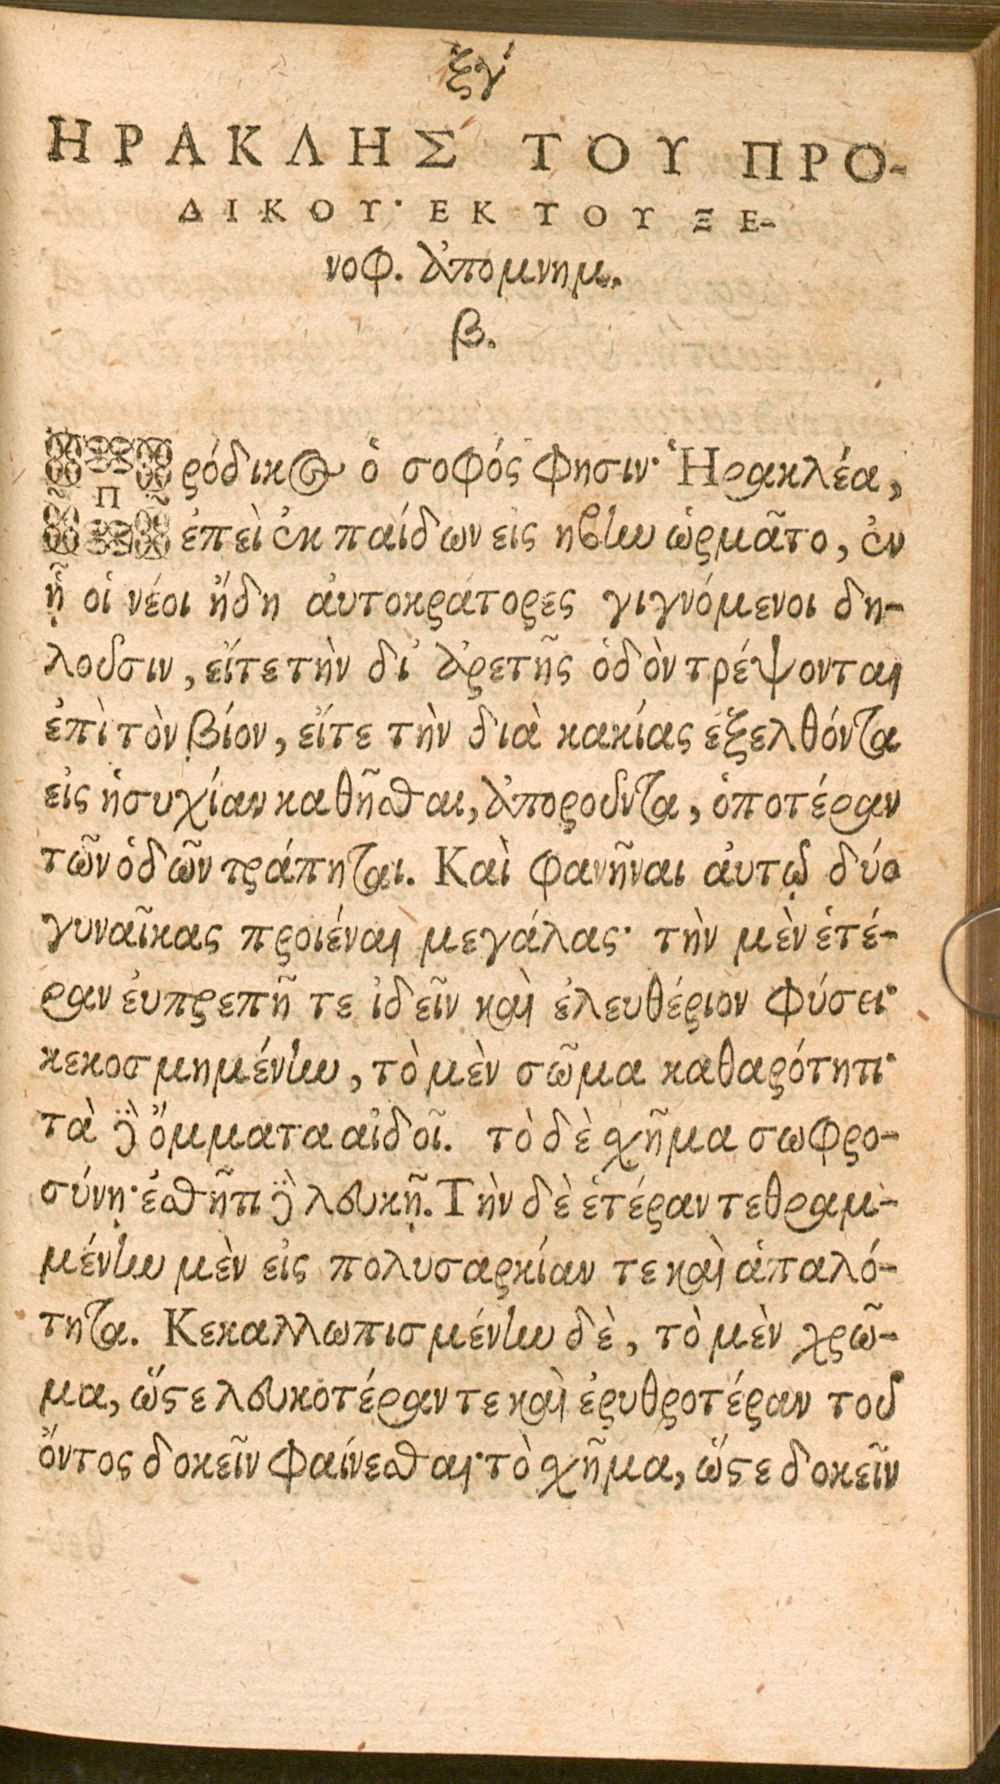 ξγʹ
ΗΡΑΚΛΗΣ ΤΟΥ ΠΡΟ-
ΔΙΚΟΥ· ΕΚ ΤΟΥ ΞΕ-
νοφ. ἀπομνημ.
β.
Πρόδικος ὁ σοφός φησιν· Ἡρακλέα,
ἐπεὶ ἐκ παίδων εἰς ηβην ὡρμᾶτο, ἐν
ᾗ οἱ νέοι ἤδη αὐτοκράτορες γιγνόμενοι δη-
λοῦσιν, εἴτε τὴν δι' ἀρετῆς ὁδὸν τρέψονται
ἐπὶ τὸν βίον, εἴτε τὴν διὰ κακίας ἐξελθόντα
εἰς ἡσυχίαν καθῆσθαι, ἀποροῦντα, ὁποτέραν
τῶν ὁδῶν τράπηται. Καὶ φανῆναι αὐτῷ δύο
γυναῖκας προιέναι μεγάλας· τὴν μὲν ἑτέ-
ραν εὐπρεπῆ τε ἰδεῖν καὶ ἐλευθέριον φύσει·
κεκοσμημένην, τὸ μὲν σῶμα καθαρότητι·
τὰ δὲ ὄμματα αἰδοῖ. τὸ δὲ σχῆμα σωφρο-
σύνῃ· ἐσθῆτι δὲ λευκῇ. Τὴν δὲ ἑτέραν τεθραμ-
μένην μὲν εἰς πολυσαρκίαν τε καὶ ἁπαλό-
τητα. Κεκαλλωπισμένην δὲ, τὸ μὲν χρῶ-
μα, ὥστε λευκοτέραν τε καὶ ἐρυθροτέραν τοῦ
ὄντος δοκεῖν φαίνεσθαι· τὸ σχῆμα, ὥστε δοκεῖν